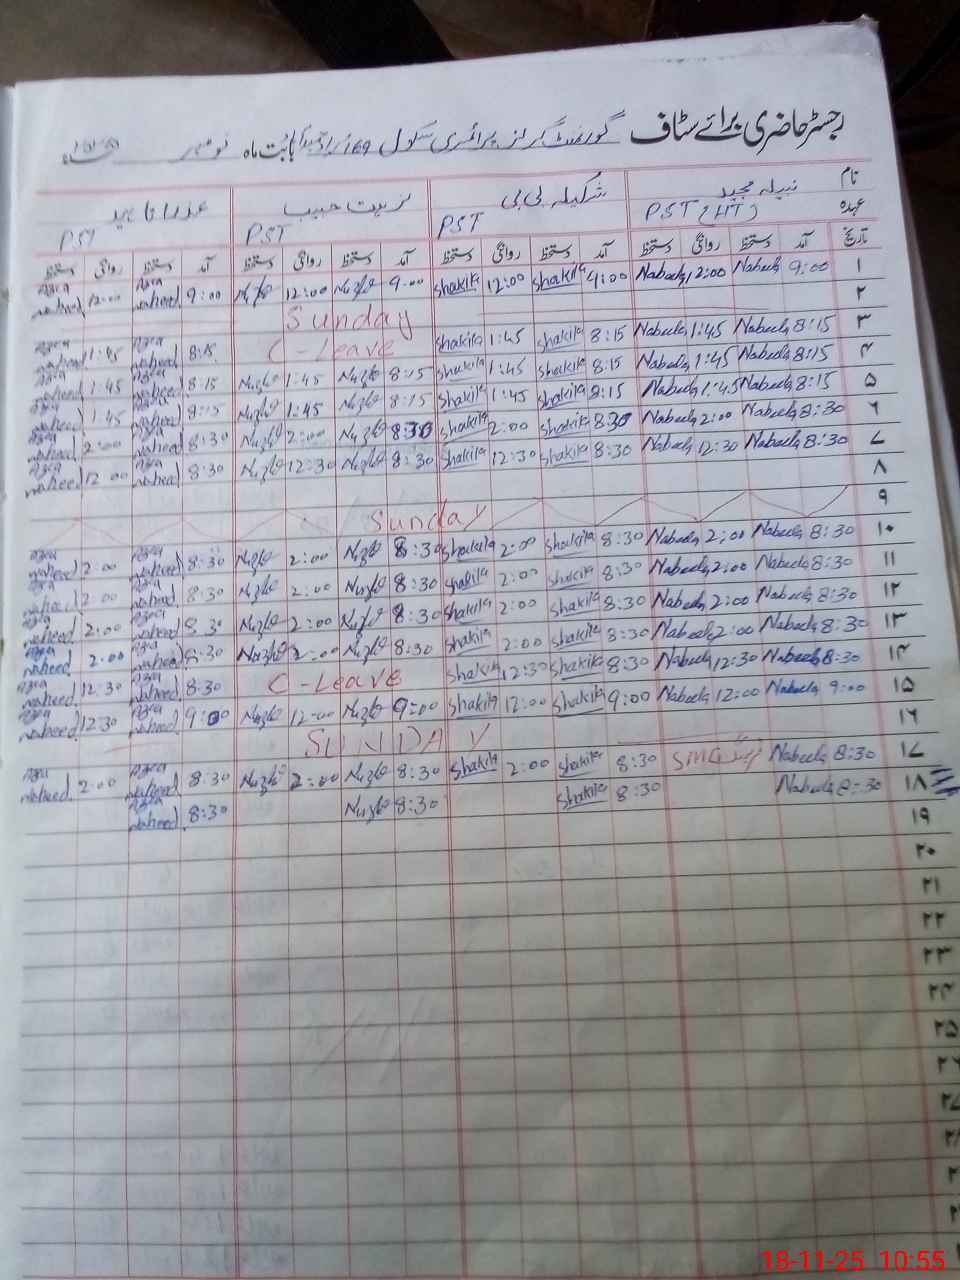 رجسٹر حاضری برائے سٹاف گورنمنٹ گرلز پرائمری سکول 169 بابت ماہ نومبر
نام نبیلہ مجید شکیلہ بی بی نزہت حبیب عذرا ناہید
عہدہ PST (HT) PST PST PST
تاریخ آمد دستخط روانگی دستخط آمد دستخط روانگی دستخط آمد دستخط روانگی دستخط آمد دستخط روانگی دستخط
۱ 9:00 Nabeela 12:00 Nabeela 9:00 Shakila 12:00 Shakila 9:00 Nuzhat 12:00 Nuzhat 9:00 Azra naheed 12:00 Azra naheed
۲ Sunday
۳ 8:15 Nabeela 1:45 Nabeela 8:15 Shakila 1:45 Shakila C-Leave 8:15 Azra naheed 1:45 Azra naheed
۴ 8:15 Nabeela 1:45 Nabeela 8:15 Shakila 1:45 Shakila 8:15 Nuzhat 1:45 Nuzhat 8:15 Azra naheed 1:45 Azra naheed
۵ 8:15 Nabeela 1:45 Nabeela 8:15 Shakila 1:45 Shakila 8:15 Nuzhat 1:45 Nuzhat 8:15 Azra naheed 1:45 Azra naheed
۶ 8:30 Nabeela 2:00 Nabeela 8:30 Shakila 2:00 Shakila 8:30 Nuzhat 2:00 Nuzhat 8:30 Azra naheed 2:00 Azra naheed
۷ 8:30 Nabeela 12:30 Nabeela 8:30 Shakila 12:30 Shakila 8:30 Nuzhat 12:30 Nuzhat 8:30 Azra naheed 12:00 Azra naheed
۸
۹ Sunday
۱۰ 8:30 Nabeela 2:00 Nabeela 8:30 Shakila 2:00 Shakila 8:30 Nuzhat 2:00 Nuzhat 8:30 Azra naheed 2:00 Azra naheed
۱۱ 8:30 Nabeela 2:00 Nabeela 8:30 Shakila 2:00 Shakila 8:30 Nuzhat 2:00 Nuzhat 8:30 Azra naheed 2:00 Azra naheed
۱۲ 8:30 Nabeela 2:00 Nabeela 8:30 Shakila 2:00 Shakila 8:30 Nuzhat 2:00 Nuzhat 8:30 Azra naheed 2:00 Azra naheed
۱۳ 8:30 Nabeela 2:00 Nabeela 8:30 Shakila 2:00 Shakila 8:30 Nuzhat 2:00 Nuzhat 8:30 Azra naheed 2:00 Azra naheed
۱۴ 8:30 Nabeela 12:30 Nabeela 8:30 Shakila 12:30 Shakila C-Leave 8:30 Azra naheed 12:30 Azra naheed
۱۵ 9:00 Nabeela 12:00 Nabeela 9:00 Shakila 12:00 Shakila 9:00 Nuzhat 12:00 Nuzhat 9:00 Azra naheed 12:30 Azra naheed
۱۶ SUNDAY
۱۷ 8:30 Nabeela SMC 8:30 Shakila 2:00 Shakila 8:30 Nuzhat 2:00 Nuzhat 8:30 Azra naheed 2:00 Azra naheed
۱۸ 8:30 Nabeela 8:30 Shakila 8:30 Nuzhat 8:30 Azra naheed
۱۹
۲۰
۲۱
۲۲
۲۳
۲۴
۲۵
۲۶
18-11-25 10:55